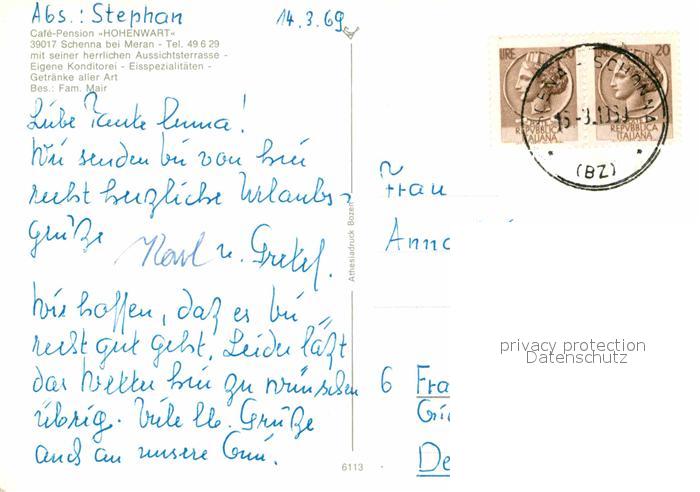 Abs.: Stephan
14.3.69
Café-Pension »HOHENWART«
39017 Schenna bei Meran - Tel. 49 6 29
mit seiner herrlichen Aussichtsterrasse -
Eigene Konditorei - Eisspezialitäten -
Getränke aller Art
Bes.: Fam. Mair
Liebe Tante Anna!
Wir senden Dir von hier
recht herzliche Urlaubs-
grüße
Karl u. Gretel.
Wir hoffen, daß es Dir
recht gut geht. Leider läßt
das Wetter hier zu wünschen
übrig. Viele lb. Grüße
auch an unsere
Athesiadruck Bozen
6113
LIRE 20
REPVBBLICA
ITALIANA
LIRE 20
REPVBBLICA
ITALIANA
SCENA - SCHONNA
(BZ)
Frau
Anna
6 Fra
De
privacy protection
Datenschutz